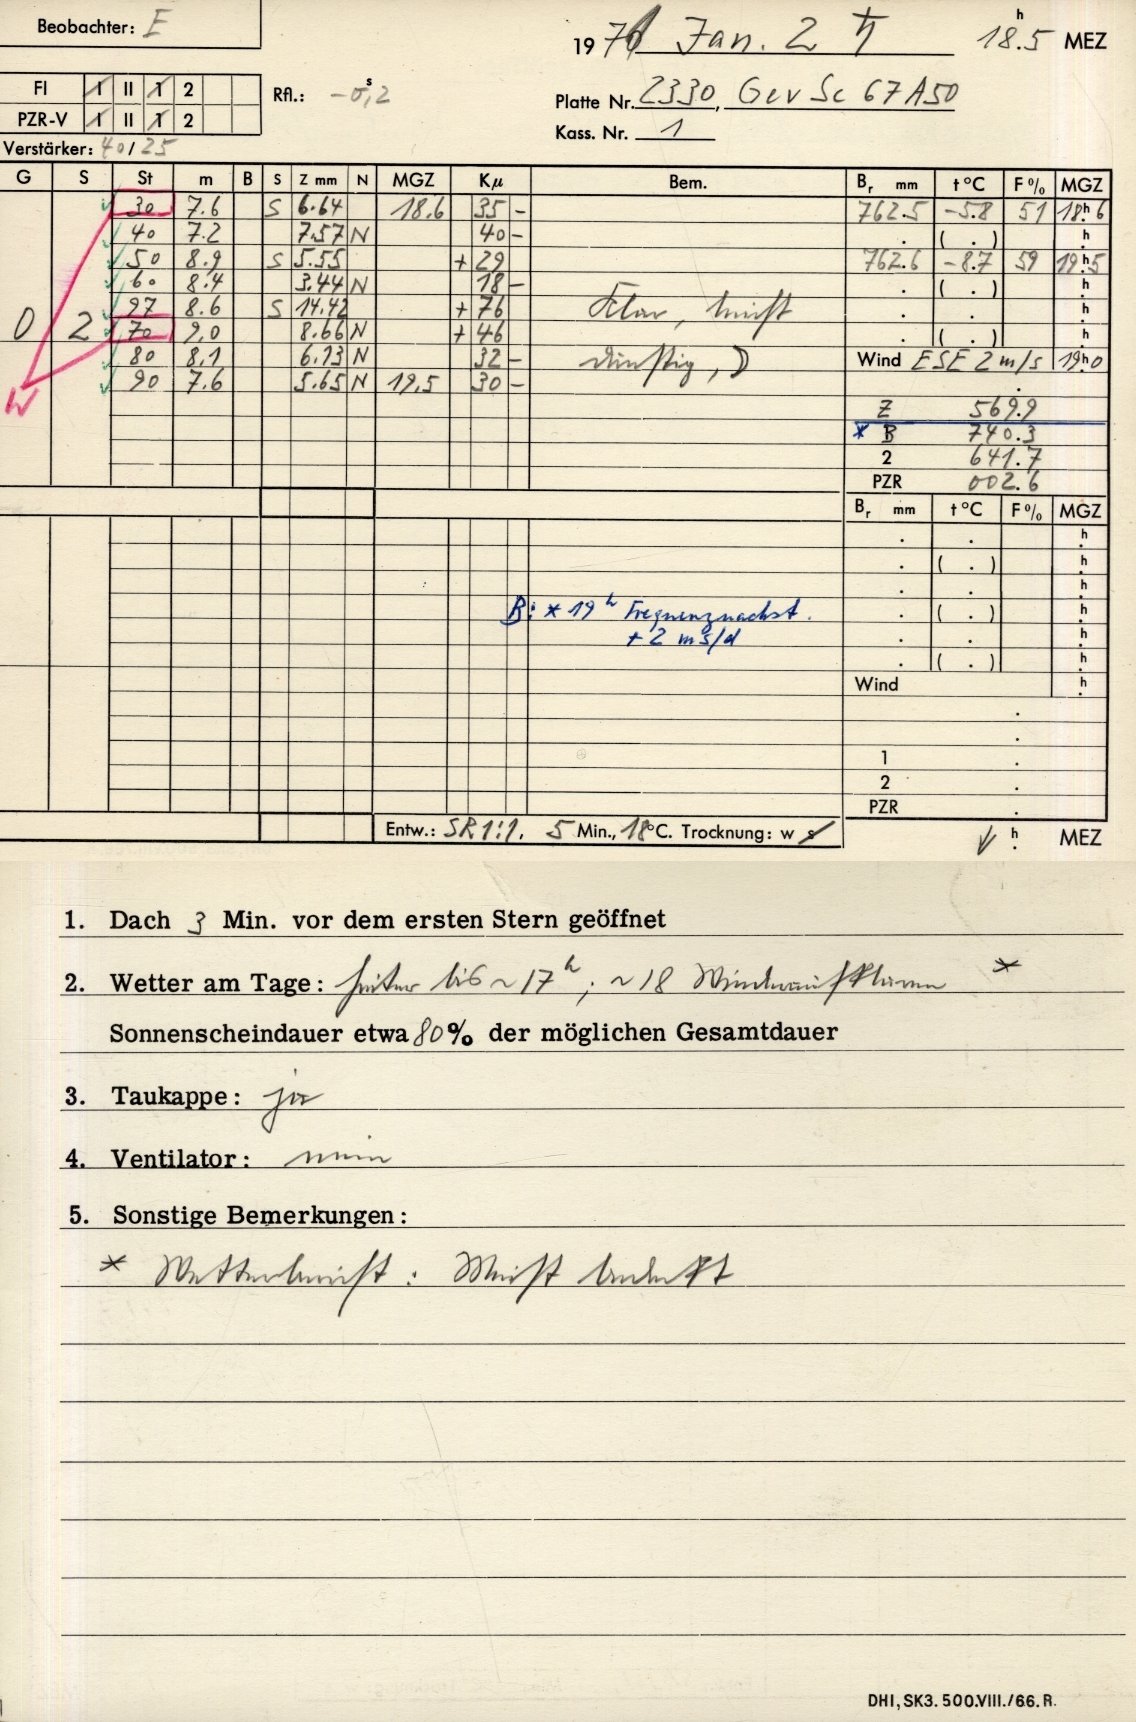 Beobachter: E
1971 Jan. 2 ♄ 18.5 h MEZ
FI I II 1 2 Rfl.: -0,s2
Platte Nr. 2330, Gev Sc 67A50
PZR-V I II 1 2
Kass. Nr. 1
Verstärker: 40/25
G S St m B S Z mm N MGZ Kμ Bem. Br mm t °C F % MGZ
30 7.6 S 6.64 18.6 35 - 762.5 -5.8 51 18h6
40 7.2 7.57 N 40 - . ( . ) h.
50 8.9 S 5.55 + 29 762.6 -8.7 59 19h5
60 8.4 3.44 N 18 - . ( . ) h.
97 8.6 S 14.42 + 76 Klar, meist . . h.
0 2 70 9,0 8.66 N + 46 . ( . ) h.
80 8,1 6.13 N 32 - dunstig, ☽ Wind ESE 2 m/s 19h0
W 90 7.6 5.65 N 19.5 30 - .
Z 569.9
* B 740.3
2 641.7
PZR 002.6
Br mm t °C F % MGZ
. . h.
. ( . ) h.
. . h.
B: * 19h Frequenznachst. . ( . ) h.
+ 2 ms/d . . h.
. ( . ) h.
Wind h.
.
.
1 .
2 .
PZR .
Entw.: SR 1:1, 5 Min., 18°C. Trocknung: w s
h. MEZ
1. Dach 3 Min. vor dem ersten Stern geöffnet
2. Wetter am Tage: heiter bis ~ 17h; ~ 18 Wiederaufklaren *
Sonnenscheindauer etwa 80% der möglichen Gesamtdauer
3. Taukappe: ja
4. Ventilator: nein
5. Sonstige Bemerkungen:
* Wetterbericht: Meist bedeckt
DHI, SK3. 500.VIII./66. R.